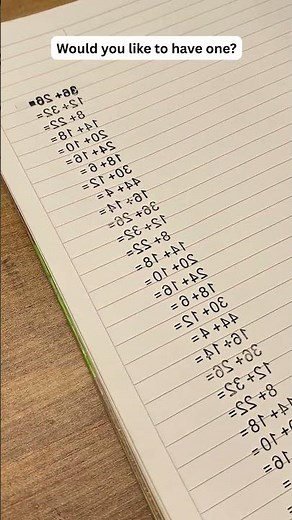 Would you like to have one?
36+26=
12+32=
8+22=
14+18=
20+10=
24+16=
18+6=
30+12=
44+4=
16+14=
36+26=
12+32=
8+22=
14+18=
20+10=
24+16=
18+6=
30+12=
44+4=
16+14=
36+26=
12+32=
8+22=
14+18=
0+10=
16=
=
=